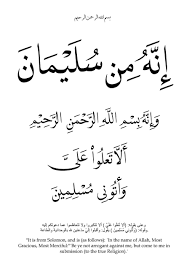 بسم الله الرحمن الرحيم
إِنَّهُ مِن سُلَيْمَانَ
وَإِنَّهُ بِسْمِ اللَّهِ الرَّحْمَنِ الرَّحِيمِ
أَلَّا تَعْلُوا عَلَيَّ
وَأْتُونِي مُسْلِمِينَ
"It is from Solomon, and is (as follows): 'In the name of Allah, Most
Gracious, Most Merciful:' 'Be ye not arrogant against me, but come to me in
submission (to the true Religion).'"